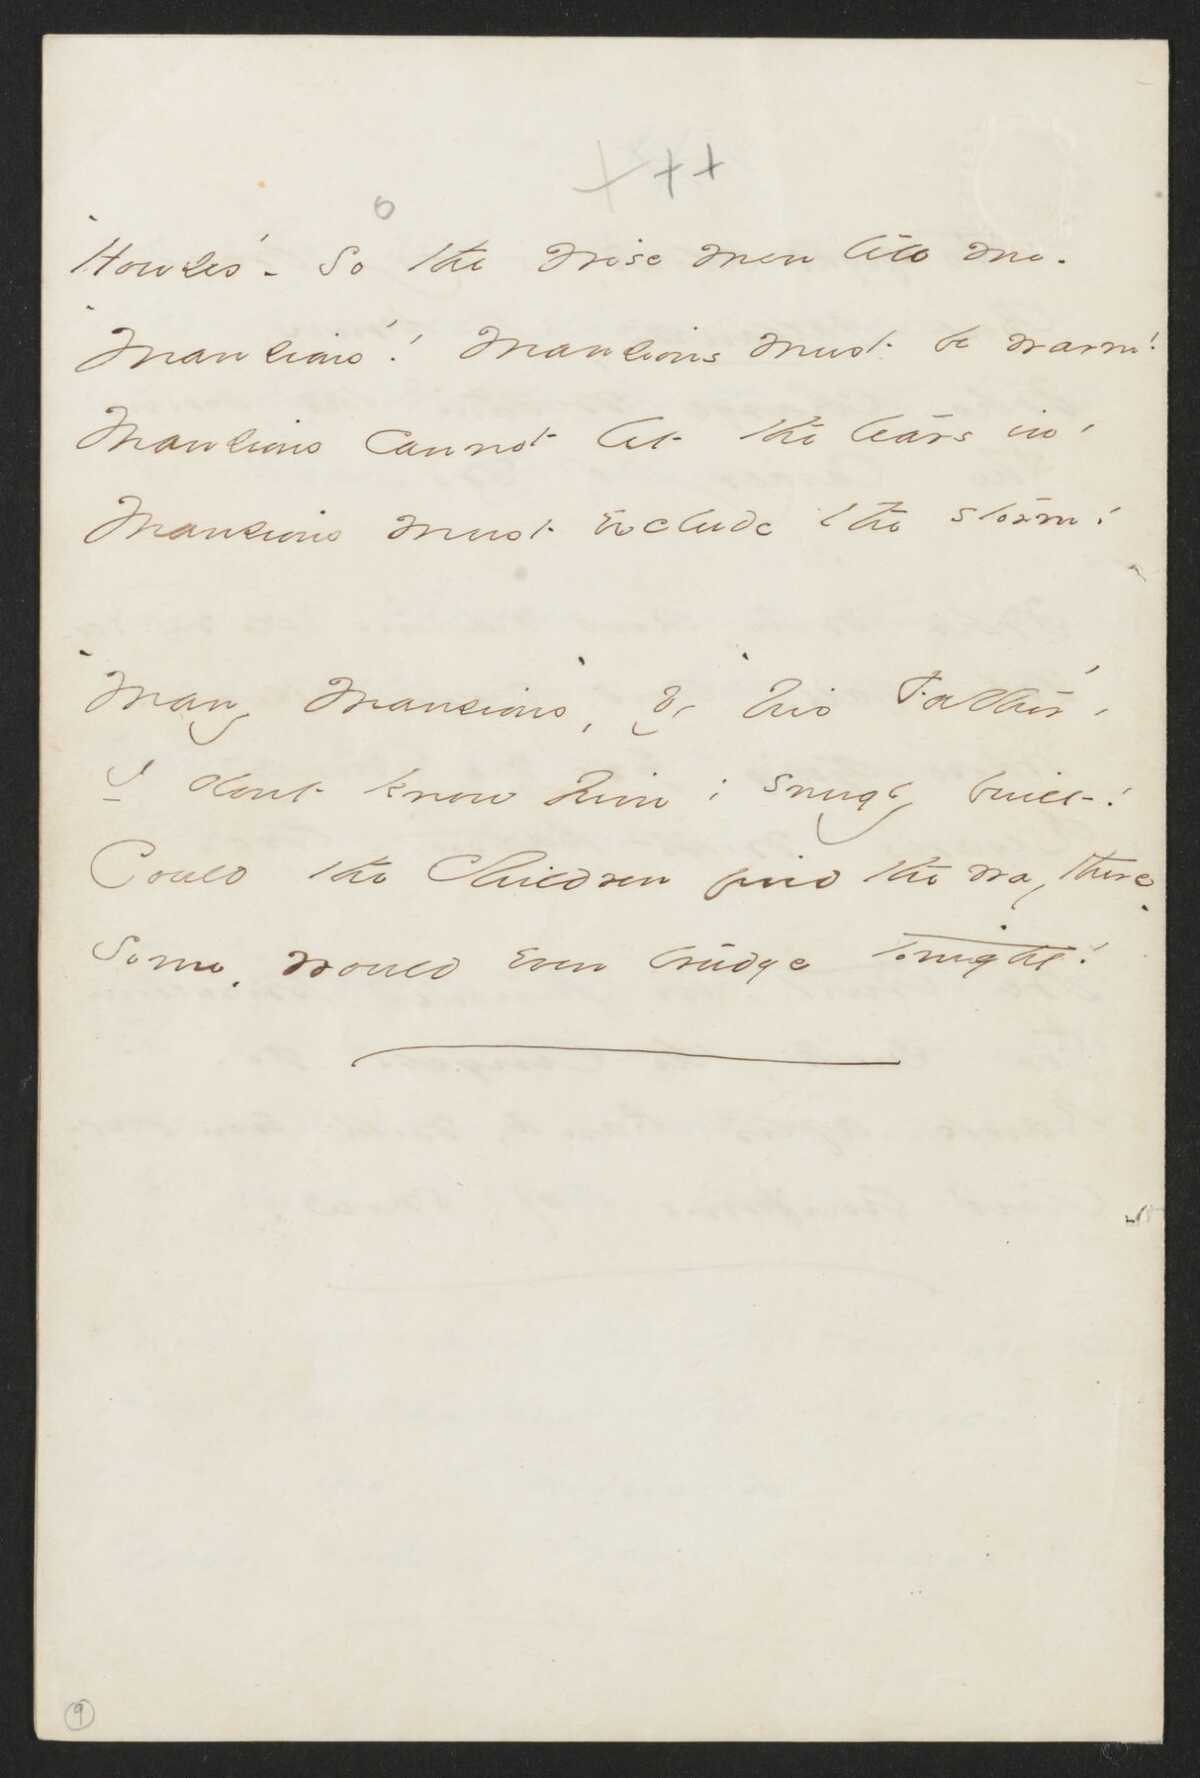 + + +
"Houses" - So the Wise Men tell me -
"Mansions"! Mansions must be warm!
Mansions cannot let the tears in,
Mansions must exclude the storm!
"Many Mansions", by "his Father",
I don't know him; snugly built!
Could the Children find the way there -
Some, would even trudge tonight!
9